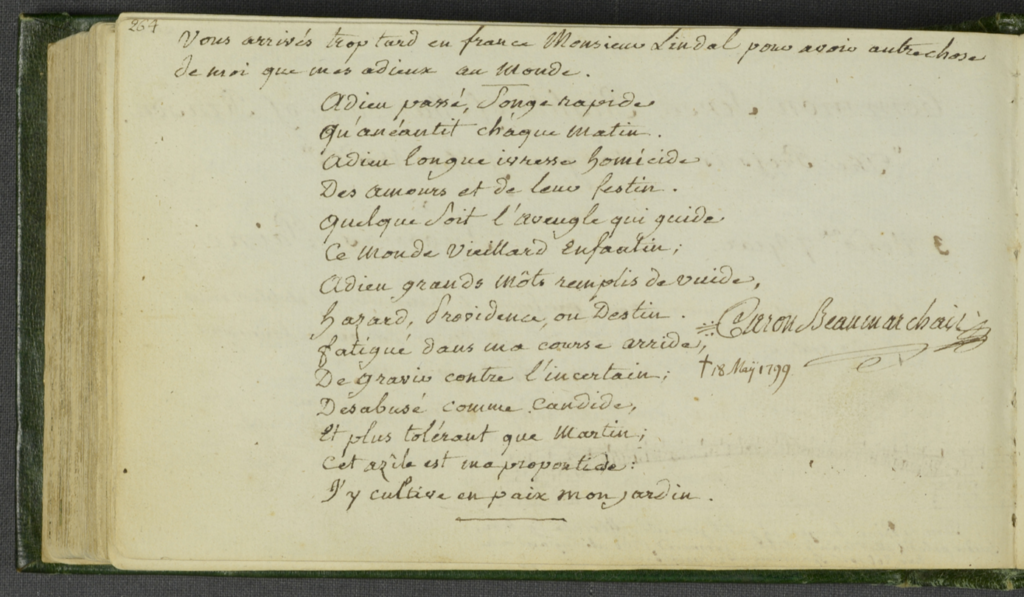 264
Vous arrivés trop tard en france Monsieur Lindal pour avoir autre chose
de moi que mes adieux au Monde.
Adieu passé, Songe rapide
Qu'anéantit cháque matin.
Adieu longue ivresse homicide
Des Amours et de leur festin.
Quelque Soit l'aveugle qui guide
Ce Monde Vieillard Enfantin;
Adieu grands Môts remplis de vuide,
hazard, Providence, ou Destin.
fatigué dans ma course arride,
De gravir contre l'incertain;
Désabusé comme Candide,
Et plus tolérant que Martin;
Cet azile est ma propontide:
J'y cultive en paix mon jardin.
Caron Beaumarchais
† 18 Maÿ 1799